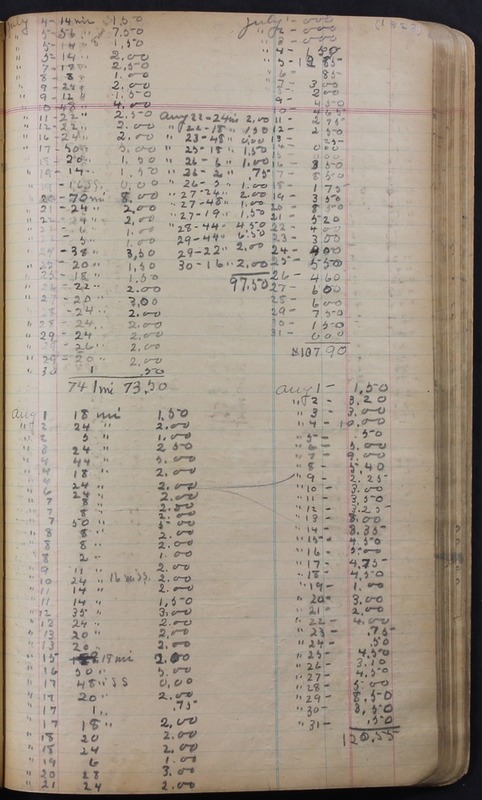 July 4 - 14 mi 1.50
" 5 - 56 " 7.50
" 5 - 14 " 1.50
" 5 - 14 2.00
" 7 - 18 2.50
" 8 - 8 1.00
" 9 - 24 2.00
" 9 - 12 1.50
10 - 48 4.00
" 11 - 22 " 2.50
" 12 - 22 " 2.00
" 16 - 24 " 2.00
" 17 - 50 5.00
20 " 1.50
" 19 - 14 1.50
20 - 70 mi 8.00
" 21 - 24 " 2.00
" 22 - 24 " 2.00
6 1.00
5 " 1.00
- 38 " 3.50
- 20 " 1.50
25 - 18 " 1.50
- 22 " 2.00
27 - 20 3.00
- 24 " 2.00
" 28 - 24 " 2.00
" 29 - 24 2.00
- 26 " 2.00
" 29 - 20 " 2.00
" 30 1 .50
741 mi 73.50
Aug 22 - 24 mi 2.00
" 22 - 18 " 1.50
" 23 - 48 " 0.00
" 25 - 18 " 1.50
" 26 - 6 " 1.00
" 26 - 2 " .75
" 26 - 5 " 1.00
" 27 - 24 " 2.00
" 27 - 48 " 1.00
" 27 - 19 " 1.50
" 28 - 44 " 4.50
29 - 44 " 6.50
29 - 22 " 2.00
30 - 16 " 2.00
97.50
July 1 - 000 (1923)
" 2 - 000
" 3 - 000
" 4 - 1.50
" 5 - 85
" 6 - 85
" 7 - 300
" 8 - 200
" 9 - 000
" 10 - 465
" 11 - 275
" 12 - 250
" 13 - 25
" 14 - 000
" 15 - 000
" 16 - 350
" 17 - 850
" 18 - 175
" 19 - 350
" 20 - 850
" 21 - 520
" 22 - 400
" 23 - 300
" 24 - 900
" 25 - 550
" 26 - 460
" 27 - 600
" 28 - 600
" 29 - 750
" 30 - 150
" 31 - 000
$107.90
Aug 1 18 mi 1.50
" 2 24 " 2.00
" 2 5 " 1.00
" 3 24 " 2.50
" 4 44 " 5.00
" 4 18 " 2.00
" 6 24 " 2.00
" 6 24 " 2.00
" 7 8 " 2.00
" 7 8 " 2.00
" 7 50 " 5.00
" 8 8 " 2.00
" 8 8 " 2.00
" 8 2 " 1.00
" 9 11 " 2.00
" 10 24 " 16 mi SS. 2.00
" 11 14 " 2.00
" 11 14 " 1.50
" 12 35 " 3.00
" 13 24 " 2.00
" 13 20 " 2.00
" 13 20 " 2.00
" 15 18 mi 2.00
" 16 50 " 5.00
" 17 48 " SS 0.00
" 17 20 " 2.00
" 17 1 " .75
" 17 18 " 2.00
" 18 20 2.00
" 18 24 2.00
" 19 6 1.00
" 20 28 3.00
" 21 24 2.00
Aug 1 - 1.50
" 2 - 3.20
" 3 - 3.00
" 4 - 10.00
" 5 - .50
" 6 - 5.00
" 7 - 9.00
" 8 - 5.40
" 9 - 2.25
" 10 - 3.00
" 11 - 3.50
" 12 - 3.25
" 13 - 8.00
" 14 - 8.35
" 15 - 4.50
" 16 - 5.00
" 17 - 4.75
" 18 - 4.50
" 19 - 1.00
" 20 - 3.00
" 21 - 2.00
" 22 - 4.00
" 23 - .75
" 24 - .50
" 25 - 4.50
" 26 - 3.50
" 27 - 4.50
" 28 - 5.00
" 29 - 8.50
" 30 - 3.50
" 31 - .50
120.55